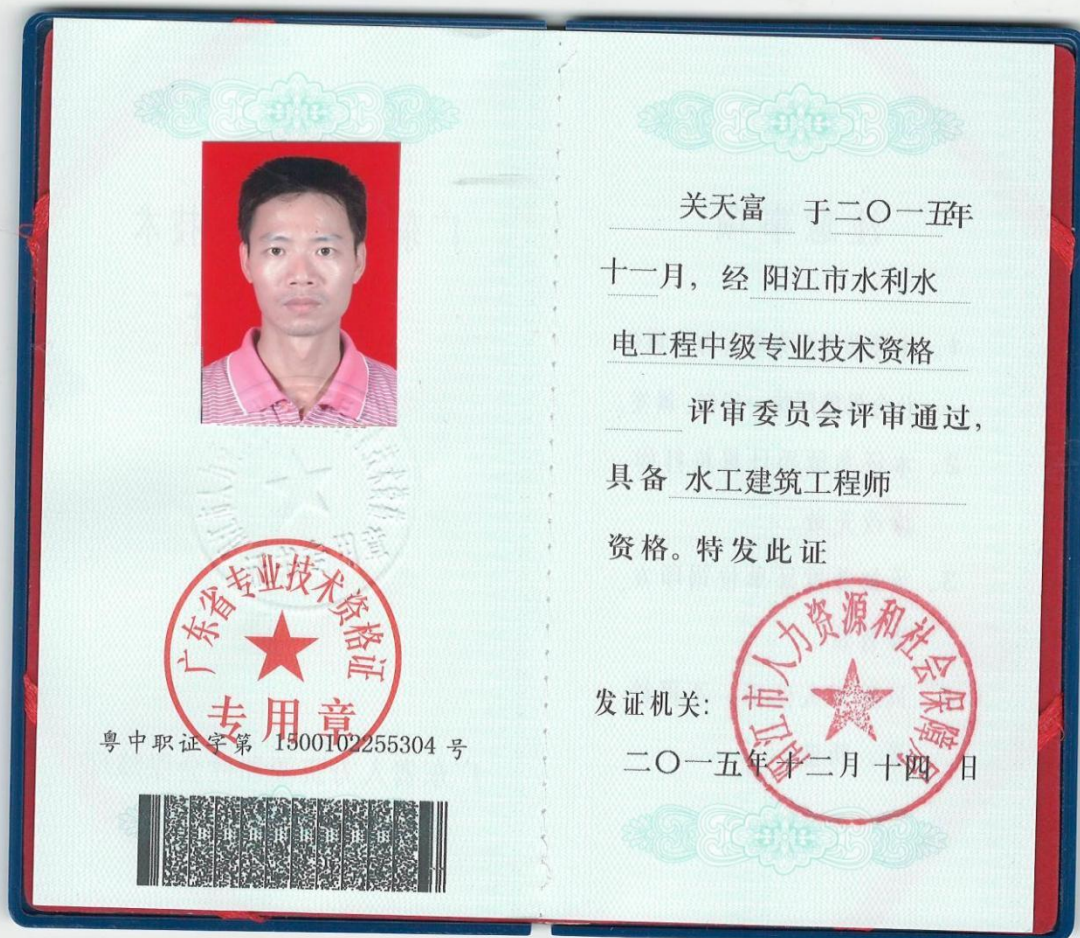 广东省专业技术资格证
专用章
粤中职证字第 1500102255304 号
关天富 于二〇一五年
十一月，经 阳江市水利水
电工程中级专业技术资格
评审委员会评审通过，
具备 水工建筑工程师
资格。特发此证
阳江市人力资源和社会保障局
发证机关:
二〇一五年十二月十四日